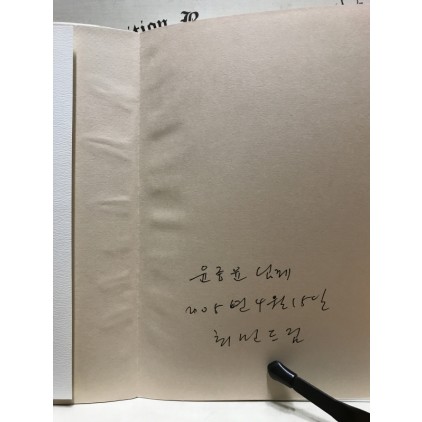 ition R
윤종윤 님께
2005년 4월 15일
최민드림